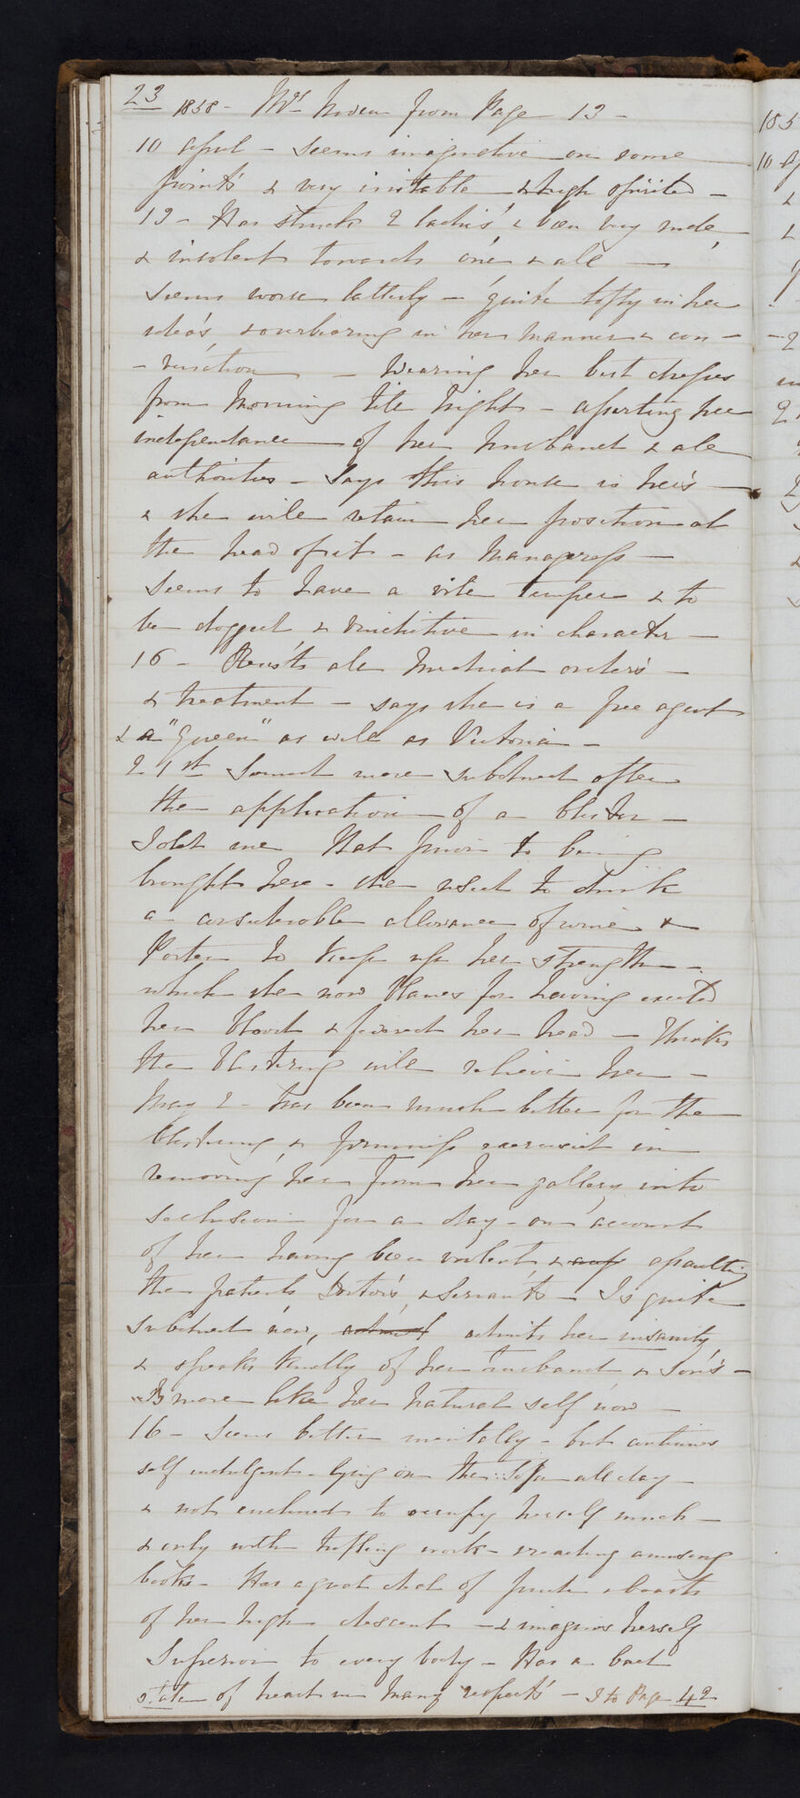 23 1858 - Mrs from Page 13 -
10 April - Seems imaginative on some
points & very irritable & high spirited -
13 - Has struck 2 ladies' & been very rude
& insolent towards one & all -
seems worse latterly - quite lofty in her
idea's, & overbearing in her manner & con -
- versation - Wearing her best dresses
from Morning till Night - asserting her
independance of her husband & all
authorities - Says this house is her's -
& she will retain her position at
the head of it - as Manageress -
Seems to have a vile temper & to
be dogged & vindictive in character -
16 - Resists all Medical order's -
& treatment - says she is a free agent
& a "Queen" as well as Victoria -
21st Seemed more subdued after
the application of a blister -
Told me that prior to being
brought here - she used to drink
a considerable allowance of wine &
Porter to keep up her strength -
which she now blames for having excited
her blood & fevered her head - Thinks
the blistering will relieve her -
May 2 - has been much better for the
blistering & firmness exercised in
removing her from her gallery into
seclusion for a day - on account
of her having been violent, & assaulting
the patients Doctor's, & Servant's - Is quite
subdued now, admits her insanity,
& speaks kindly of her husband & Son's -
Is more like her natural self now -
16 - Seems better mentally - but continues
self indulgent - lying on the Sofa all day -
& not inclined to occupy herself much -
& only with trifling work - & reading amusing
books - Has a great deal of pride & boasts
of her high descent - & imagines herself
Superior to every body - Has a bad
state of heart in many respects - To Page 42
185
10 Ap
&
&